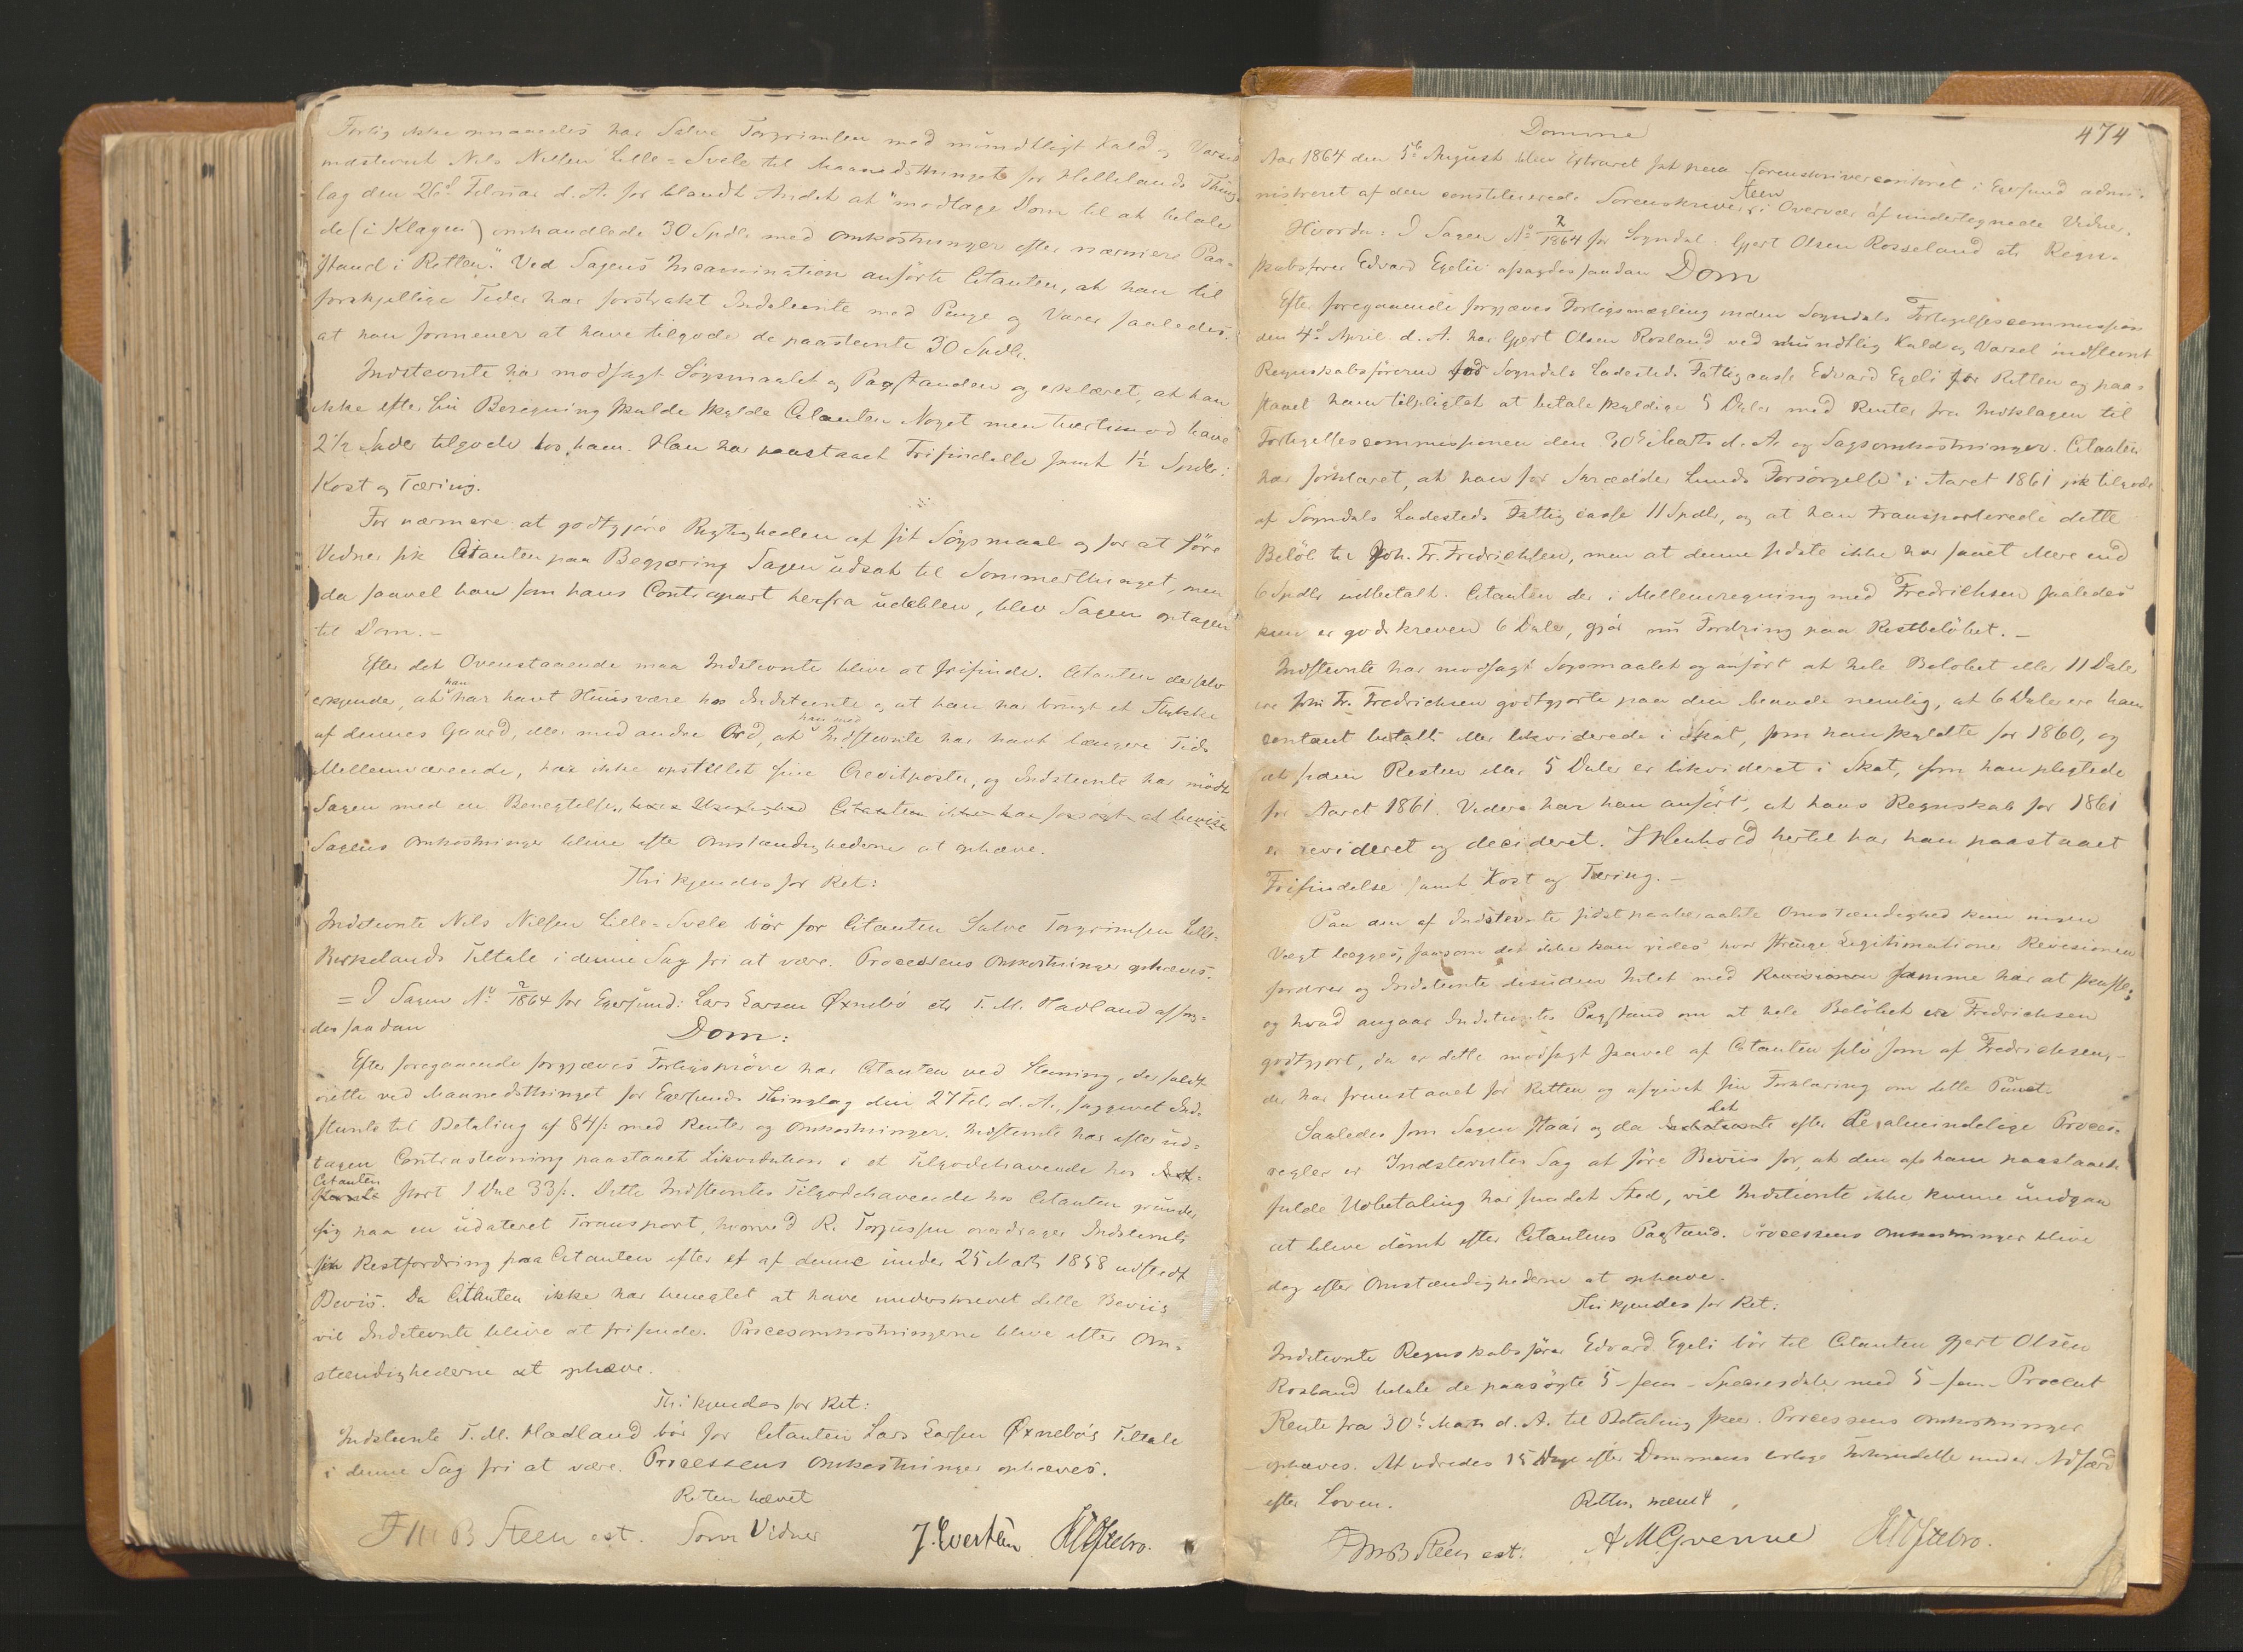 Forlig ikke opnaaedes har Salve Torgrimsen med mundtligt Kald og Varsel
indstevnt Nils Nilsen Lille-Svele til Maanedsthinget for Hellelands Thing-
lag den 26d Februar d. A. for blandt Andet at "modtage Dom til at betale
de (i Klagen) omhandlede 30 Spdlr med Omkostninger efter nærmere Paa-
stand i Retten". Ved Sagens Incamination anförte Citanten, at han til
forskjellige Tider har forstrakt Indstevnte med Penge og Varer saaledes,
at han formener at have tilgode de paastevnte 30 Spdlr.
Indstevnte har modsagt Sögsmaalet og Paastanden og erklæret, at han
ikke efter sin Beregning skulde skylde Citanten Noget men tvertimod have
2 1/2 Spdlr tilgode hos ham. Han har paastaaet Frifindelse samt 1 1/2 Spdlr:
Kost og Tæring.
For nærmere at godtgjöre Rigtigheden af sit Sögsmaal og for at före
Vidner fik Citanten paa Begjæring Sagen udsat til Sommerthinget, men
da saavel han som hans Contrapart herfra udeblev, blev Sagen optagen
til Dom. -
Efter det Ovenstaaende maa Indstevnte blive at frifinde. Citanten der selv
erkjender, at han har havt Huusvære hos Indstevnte og at han har brugt et Stykke
af dennes Gaard, eller med andre Ord, at han med Indstevnte har havt længere Tids
Mellemværende, har ikke opstillet sine Creditposter, og Indstevnte har mödt
Sagen med en Benegtelse, Citanten ikke har forsögt at bevise
Sagens Omkostninger blive efter Omstændighederne at ophæve.
Thi kjendes for Ret:
Indstevnte Nils Nilsen Lille-Svele bör for Citanten Salve Torgrimsen Lille-
Birkelands Tiltale i denne Sag fri at være. Processens Omkostninger ophæves.
= I Sagen No 2/1864 for Egersund: Lars Larsen Øxnebö ctr T. M. Hadland afsag-
des saadan
Dom:
Efter foregaaende forgjæves Forligspröve har Citanten ved Stevning, der faldt
irette ved Maanedsthinget for Egersunds Thinglag den 27 Feb. d. A., saggivet Ind-
stevnte til Betaling af 84 s: med Renter og Omkostninger. Indstevnte har efter ud-
tagen Contrastevning paastaaet Likvidation i et Tilgodehavende hos
Citanten stort 1 Dlr 33 s:. Dette Indstevntes Tilgodehavende hos Citanten grunder
sig paa en udateret Transport, hvorved R. Torjussen overdrager Indstevnte
sin Restfordring paa Citanten efter et af denne under 25 Marts 1858 udstedt
Bevis. Da Citanten ikke har benegtet at have underskrevet dette Beviis
vil Indstevnte blive at frifinde. Procesomkostningerne blive efter Om-
stændighederne at ophæve.
Thi kjendes for Ret:
Indstevnte T. M. Hadland bör for Citanten Lars Larsen Øxnebös Tiltale
i denne Sag fri at være. Processens Omkostninger ophæves.
Retten hævet
F M B Steen cst. Som Vidner J. Evertsen
474
Domme
Aar 1864 den 5te August blev Extraret sat paa Sorenskrivercontoret i Egersund admi-
nistreret af den constituerede Sorenskriver Steen i Overvær af undertegnede Vidner.
Hvorda: I Sagen No 2/1864 for Sogndal: Gjert Olsen Rosseland ctr Regn-
skabsförer Edvard Egelie afsagdes saadan Dom
Efter foregaaende forgjæves Forligsmægling inden Sogndals Forligelsescommission
den 4d April d. A. har Gjert Olsen Rosland ved mundtlig Kald og Varsel indstevnt
Regnskabsföreren for Sogndals Ladesteds Fattigcasse Edvard Egeli for Retten og paa-
staaet ham tilpligtet at betale skyldige 5 Daler med Renter fra Indklagen til
Forligelsescommissionen den 30te Marts d. A. og Sagsomkostninger. Citanten
har forklaret, at han for Skrædder Lunds Forsörgelse i Aaret 1861 fik tilgode
af Sogndals Ladesteds Fattigcasse 11 Spdlr, og at han transporterede dette
Belöb til Joh. Fr. Fredrichsen, men at denne sidste ikke har faaet Mere end
6 Spdlr udbetalt. Citanten der i Mellemregning med Fredrichsen saaledes
kun er godskreven 6 Daler, gjör nu Fordring paa Restbelöbet. -
Indstevnte har modsagt Sögsmaalet og anfört at hele Belöbet eller 11 Daler
ere Joh: Fr. Fredrichsen godtgjorte paa den Maade nemlig, at 6 Daler ere ham
contant betalt eller likviderede i Skat, som han skyldte for 1860, og
at saa Resten eller 5 Daler er likvideret i Skat, som han pligtede
for Aaret 1861. Videre har han anfört, at hans Regnskab for 1861
er revideret og decideret. I Henhold hertil har han paastaaet
Frifindelse samt Kost og Tæring. -
Paa den af Indstevnte sidst paaberaabte Omstændighed kan ingen
Vægt lægges, saasom det ikke kan vides hvor strenge Legitimationer Revisionen
fordrer og Indstevnte desuden Intet med samme har at skaffe;
og hvad angaar Indstevntes Paastand om at hele Belöbet er Fredrichsen
godtgjort, da er dette modsagt saavel af Citanten selv som af Fredrichsen, -
der har fremstaaet for Retten og afgivet sin Forklaring om dette Punct.
Saaledes som Sagen staar og da det efter de almindelige Proces-
regler er Indstevntes Sag at före Beviis for, at den af ham paastaaede
fulde Udbetaling har fundet Sted, vil Indstevnte ikke kunne undgaa
at blive dömt efter Citantens Paastand. Processens Omkostninger blive
dog efter Omstændighederne at ophæve.
Thi kjendes for Ret:
Indstevnte Regnskabsförer Edvard Egeli bör til Citanten Gjert Olsen
Rosland betale de paasögte 5 - fem - Speciesdaler med 5 - fem - Procent
Rente fra 30te Marts d. A. til Betaling skeer. Processens Omkostninger
ophæves. At udredes 15 Dage efter Dommens lovlige Forkyndelse under Adfærd
efter Loven.
Retten hævet.
F M B Steen cst.